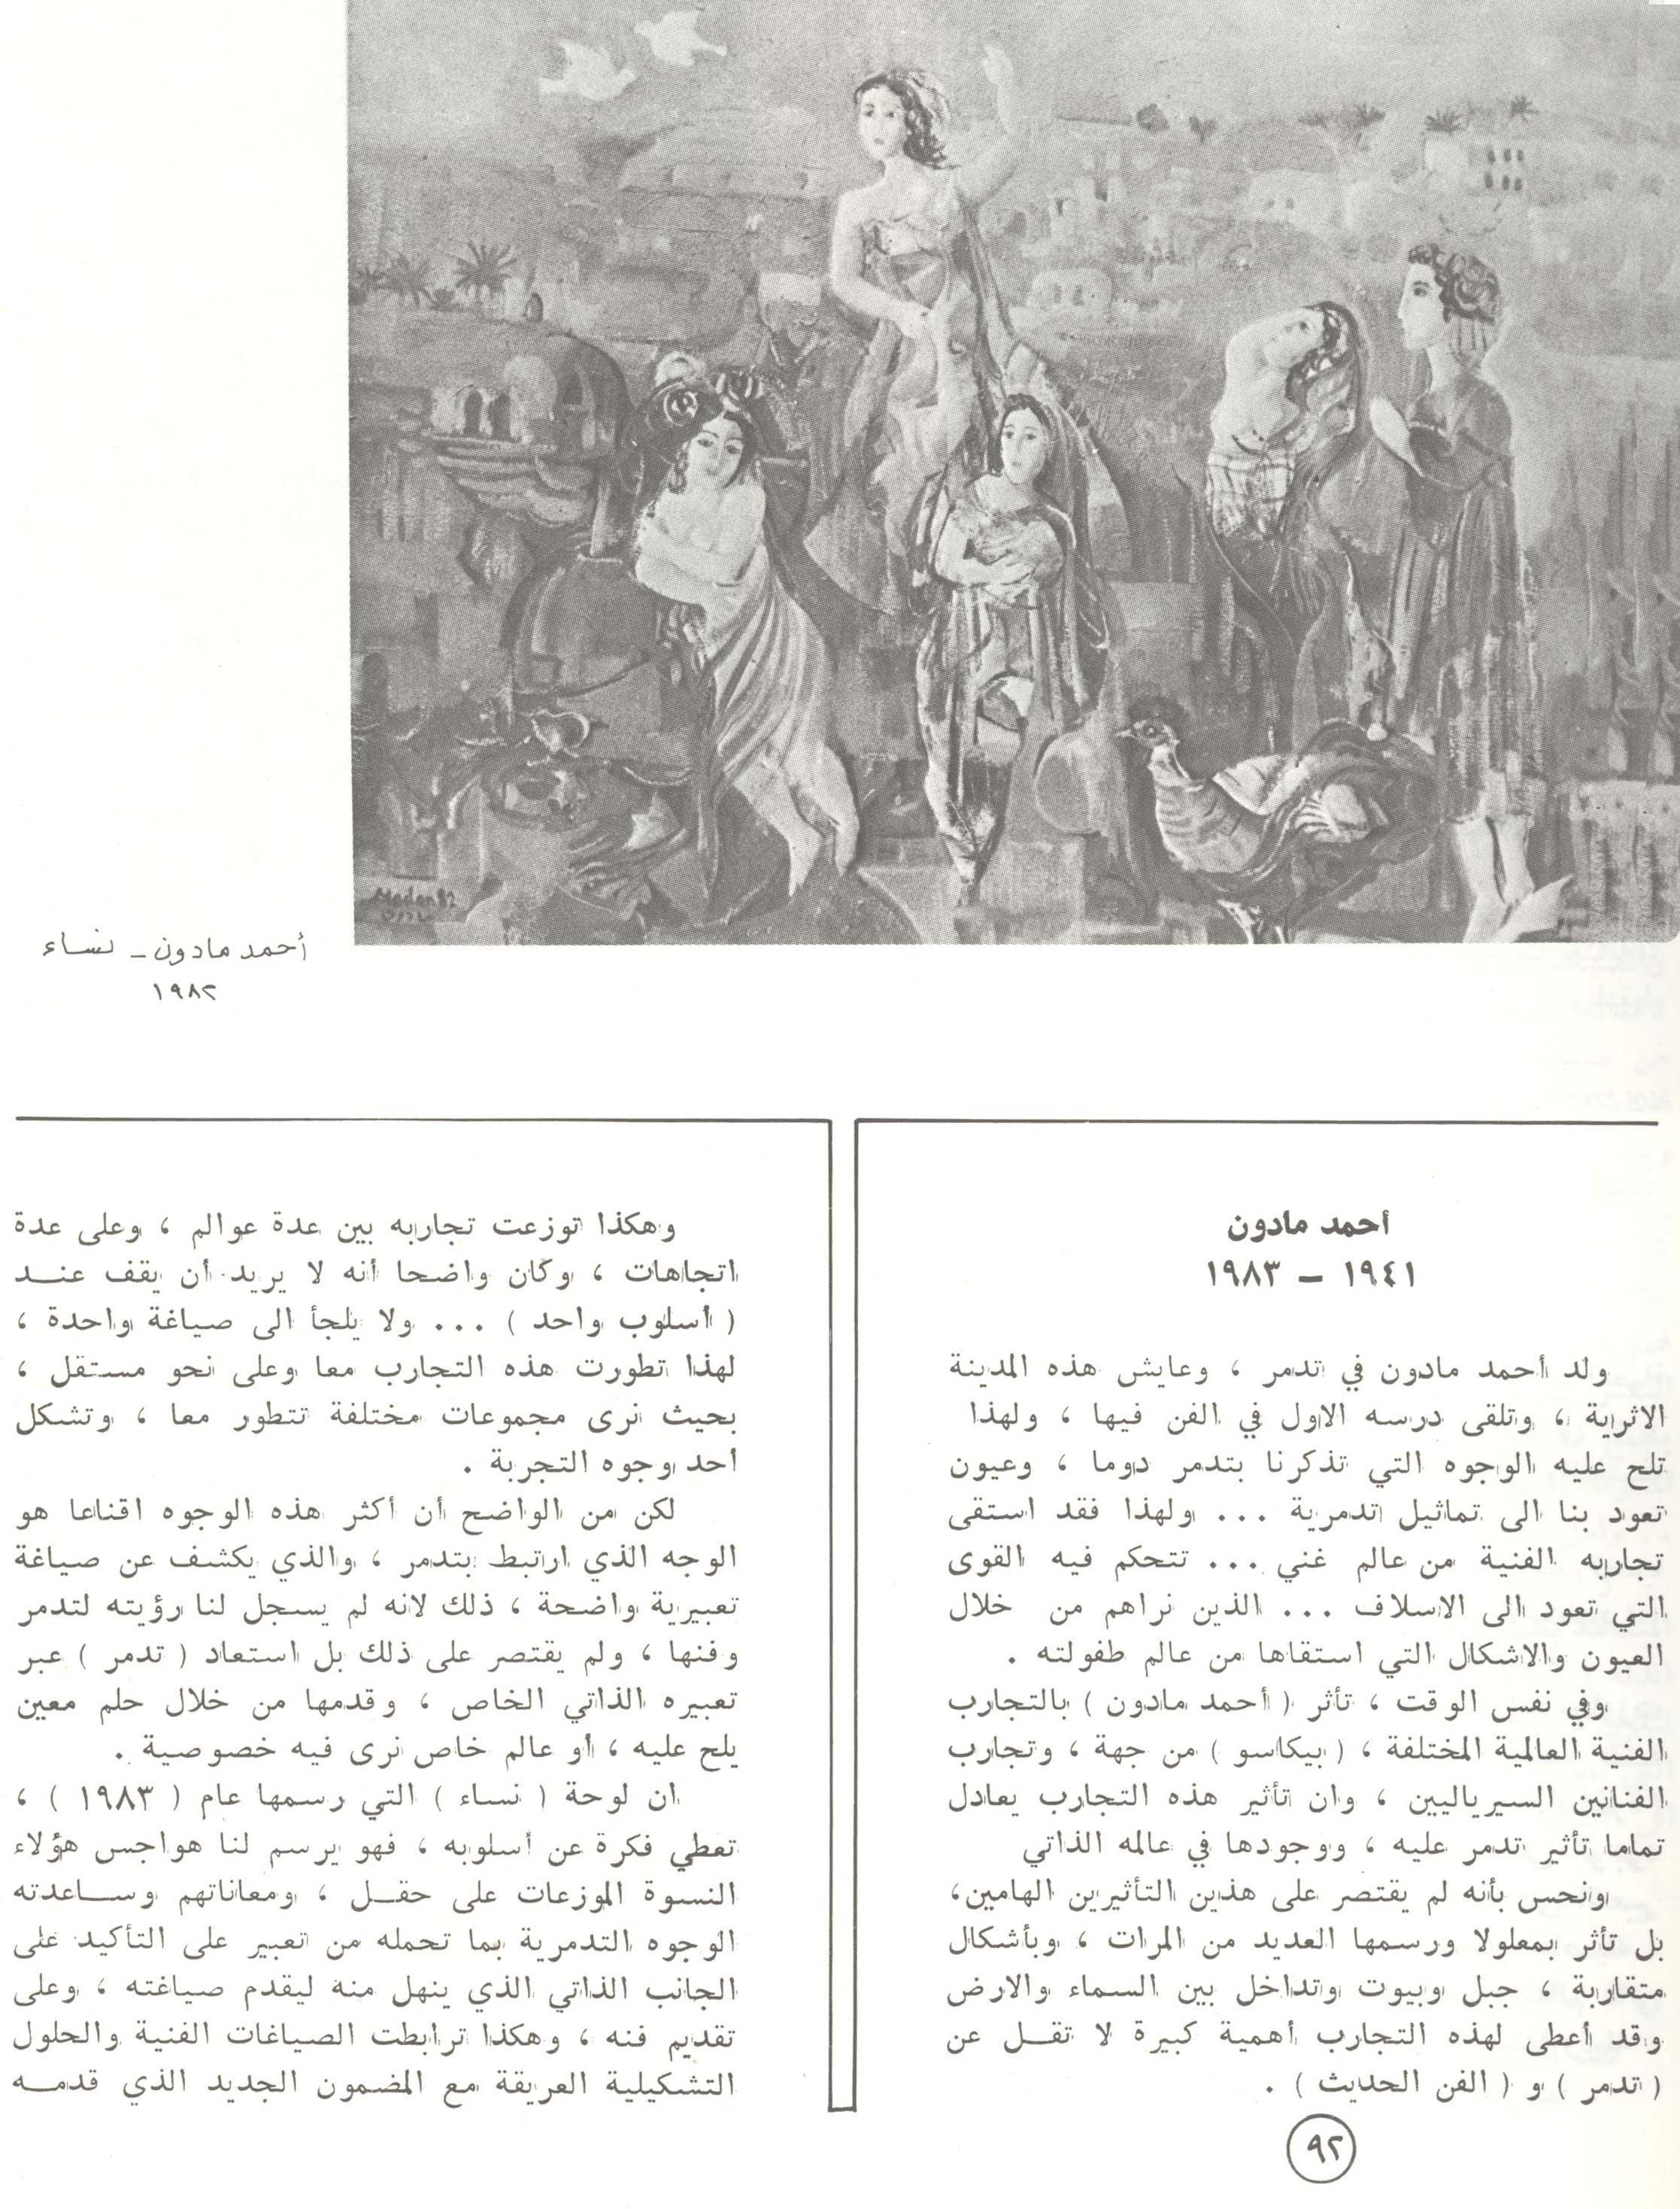 Madon 82
مادون
أحمد مادون - نساء
١٩٨٢
أحمد مادون
١٩٤١ - ١٩٨٣
ولد أحمد مادون في تدمر ، وعايش هذه المدينة
الاثرية ، وتلقى درسه الاول في الفن فيها ، ولهذا
تلح عليه الوجوه التي تذكرنا بتدمر دوما ، وعيون
تعود بنا الى تماثيل تدمرية ... ولهذا فقد استقى
تجاربه الفنية من عالم غني ... تتحكم فيه القوى
التي تعود الى الاسلاف ... الذين نراهم من خلال
العيون والاشكال التي استقاها من عالم طفولته .
وفي نفس الوقت ، تأثر ( أحمد مادون ) بالتجارب
الفنية العالمية المختلفة ، ( بيكاسو ) من جهة ، وتجارب
الفنانين السيرياليين ، وان تأثير هذه التجارب يعادل
تماما تأثير تدمر عليه ، ووجودها في عالمه الذاتي
ونحس بأنه لم يقتصر على هذين التأثيرين الهامين،
بل تأثر بمعلولا ورسمها العديد من المرات ، وبأشكال
متقاربة ، جبل وبيوت وتداخل بين السماء والارض
وقد أعطى لهذه التجارب أهمية كبيرة لا تقـل عن
( تدمر ) و ( الفن الحديث ) .
وهكذا توزعت تجاربه بين عدة عوالم ، وعلى عدة
اتجاهات ، وكان واضحا أنه لا يريد أن يقف عنـد
( أسلوب واحد ) ... ولا يلجأ الى صياغة واحدة ،
لهذا تطورت هذه التجارب معا وعلى نحو مستقل ،
بحيث نرى مجموعات مختلفة تتطور معا ، وتشكل
أحد وجوه التجربة .
لكن من الواضح أن أكثر هذه الوجوه اقناعا هو
الوجه الذي ارتبط بتدمر ، والذي يكشف عن صياغة
تعبيرية واضحة ، ذلك لانه لم يسجل لنا رؤيته لتدمر
وفنها ، ولم يقتصر على ذلك بل استعاد ( تدمر ) عبر
تعبيره الذاتي الخاص ، وقدمها من خلال حلم معين
يلح عليه ، أو عالم خاص نرى فيه خصوصية .
ان لوحة ( نساء ) التي رسمها عام ( ١٩٨٣ ) ،
تعطي فكرة عن أسلوبه ، فهو يرسم لنا هواجس هؤلاء
النسوة الموزعات على حقـل ، ومعاناتهم وسـاعدته
الوجوه التدمرية بما تحمله من تعبير على التأكيد على
الجانب الذاتي الذي ينهل منه ليقدم صياغته ، وعلى
تقديم فنه ، وهكذا ترابطت الصياغات الفنية والحلول
التشكيلية العريقة مع المضمون الجديد الذي قدمـه
٩٢